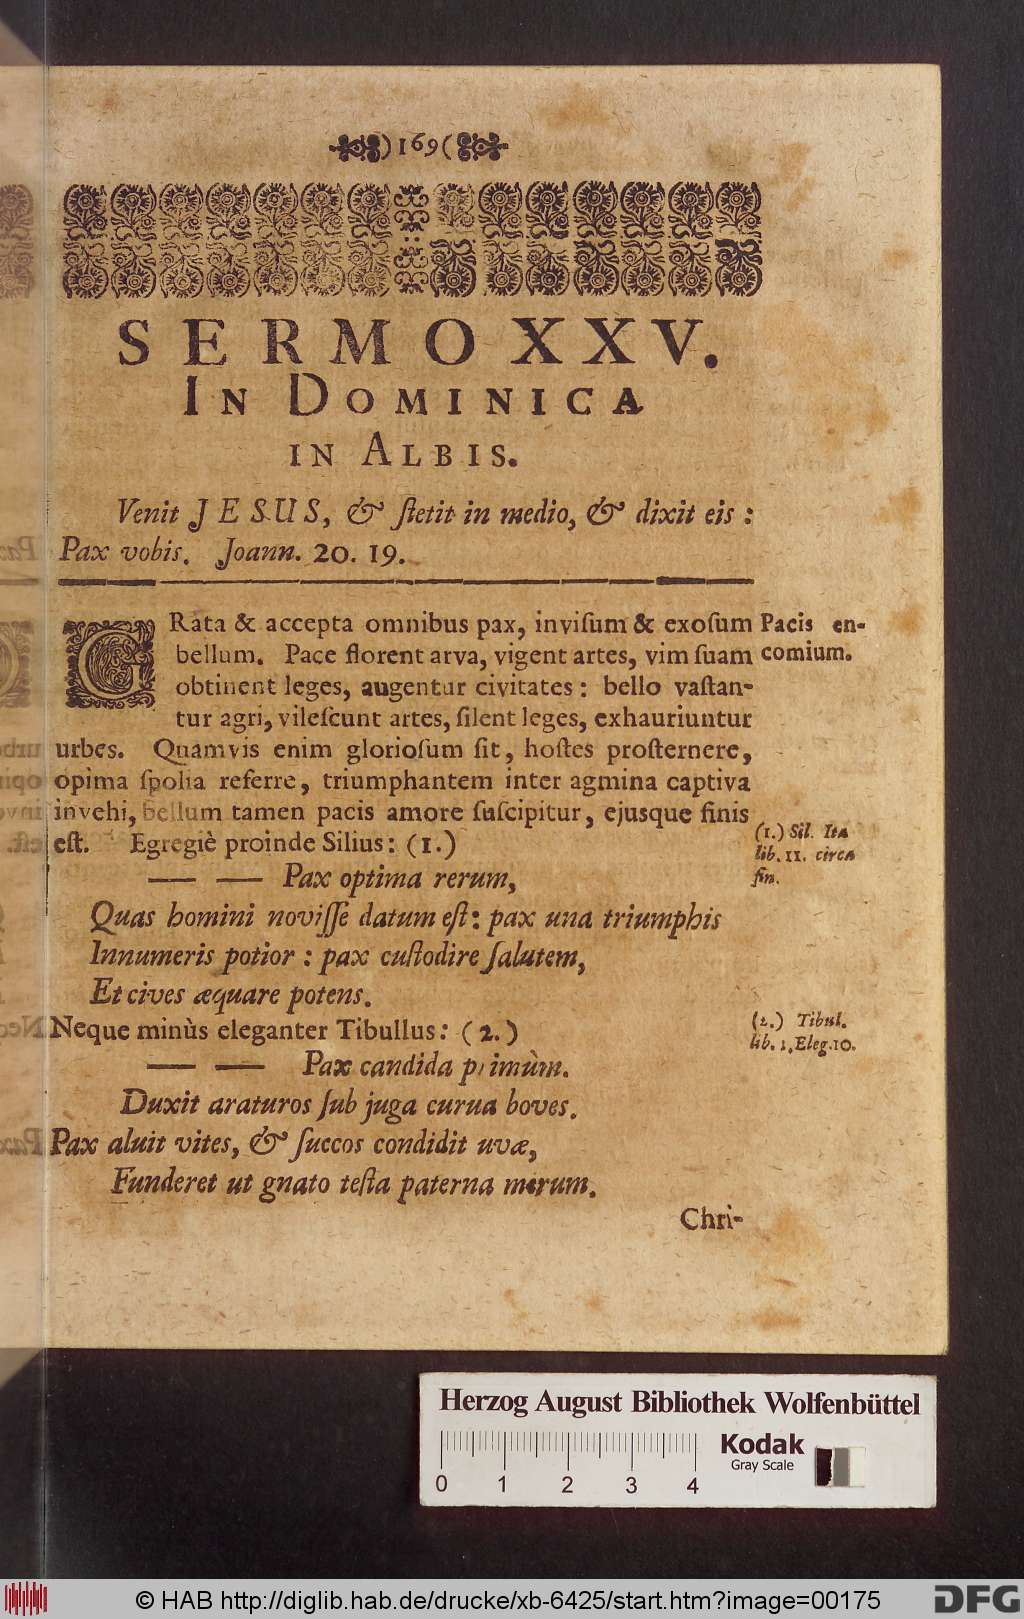 )169(
SERMO XXV.
IN DOMINICA
IN ALBIS.
Venit JESUS, & ſtetit in medio, & dixit eis :
Pax vobis. Joann. 20. 19.
GRata & accepta omnibus pax, inviſum & exoſum
bellum. Pace florent arva, vigent artes, vim ſuam
obtinent leges, augentur civitates : bello vaſtan-
tur agri, vileſcunt artes, ſilent leges, exhauriuntur
urbes. Quamvis enim glorioſum ſit, hoſtes proſternere,
opima ſpolia referre, triumphantem inter agmina captiva
invehi, bellum tamen pacis amore ſuſcipitur, ejusque finis
eſt. Egregiè proinde Silius: (1.)
Pacis en-
comium.
(1.) Sil. Ita
lib. 11. circa
fin.
— — Pax optima rerum,
Quas homini noviſſe datum eſt: pax una triumphis
Innumeris potior : pax cuſtodire ſalutem,
Et cives æquare potens.
Neque minùs eleganter Tibullus: (2.)
(2.) Tibul.
lib. 1. Eleg. 10.
— — Pax candida primùm.
Duxit araturos ſub juga curua boves.
Pax aluit vites, & ſuccos condidit uvæ,
Funderet ut gnato teſta paterna merum.
Chri-
Herzog August Bibliothek Wolfenbüttel
0 1 2 3 4
Kodak
Gray Scale
© HAB http://diglib.hab.de/drucke/xb-6425/start.htm?image=00175
DFG